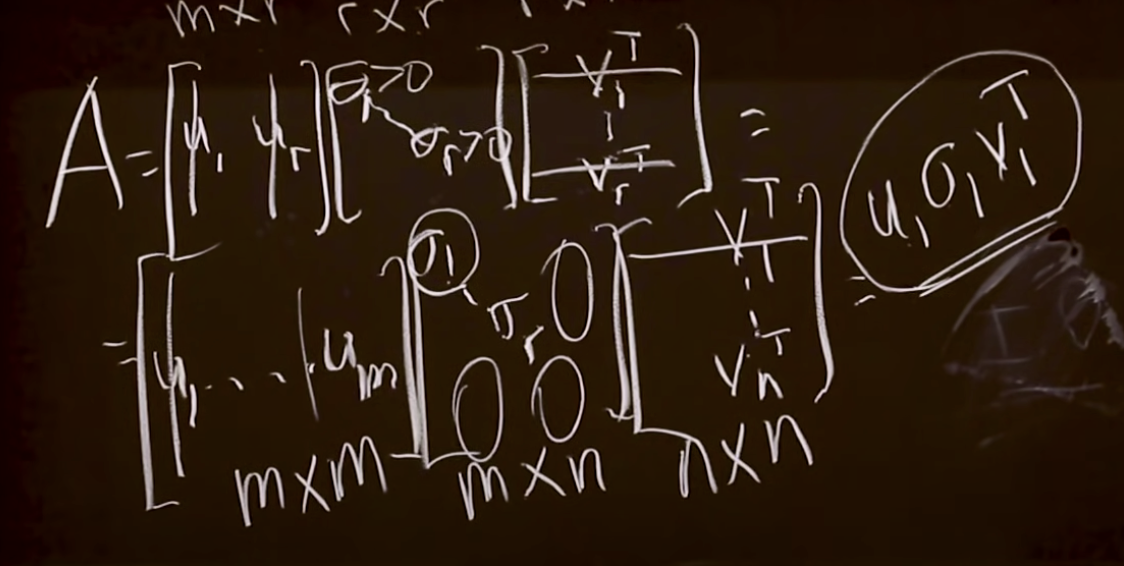 m×r r×r
A = [u₁ uᵣ] [σ₁>0 ⋱ σᵣ>0] [v₁ᵀ ⋮ vᵣᵀ] = u₁σ₁v₁ᵀ
= [u₁ . . . uₘ] [σ₁ ⋱ σᵣ 0 0 0] [vᵀ₁ ⋮ vₙᵀ] =
m×m m×n n×n